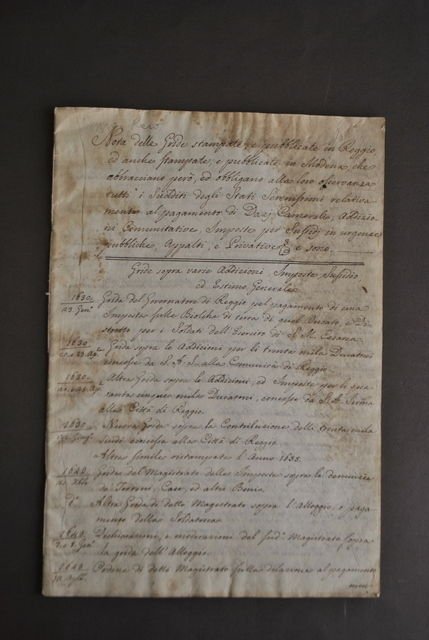 Nota delle Gride stampate, e pubblicate in Reggio,
ed anche stampate, e pubblicate in Modena, che
abbracciano però, ed obbligano alla loro osservanza
tutti i Sudditi degli Stati Serenissimi relativa-
mente al pagamento di Dazj Camerali, Addizio-
ni Comunitative, Imposte per Sussidj in urgenze
pubbliche, Appalti, e Privative &c. e sono.
Gride sopra varie Addizioni, Imposte, Sussidio
ed Estimo Generale
1630 Grida del Governatore di Reggio pel pagamento di una
23 Genº Imposta sulle Biolche di terra di quel Ducato, e Di-
stretto per i Soldati dell'Esercito di S. M. Cesarea
1630 Grida sopra le Addizioni per li trenta mila Ducatoni
concesse da S. A. S. alla Comunità di Reggio
1630 Altra Grida sopra le Addizioni, ed Imposte per li
cinque mila Ducatoni, concesse da S. A. Serma
alla Città di Reggio
1630 Nuova Grida sopra la Contribuzione delli trenta mila
scudi concessa alla Città di Reggio
Altra simile ristampata l'Anno 1635.
1640 Grida del Magistrato delle Imposte sopra le denuncie
de Terreni, Case, ed altri Beni
dº Altra Grida di detto Magistrato sopra l'Alloggio, e paga-
mento della Soldatesca
Dichiarazione, e moderazione del sudº Magistrato sopra
la grida dell'Alloggio
Ordine di detto Magistrato sulla dilazione al pagamento